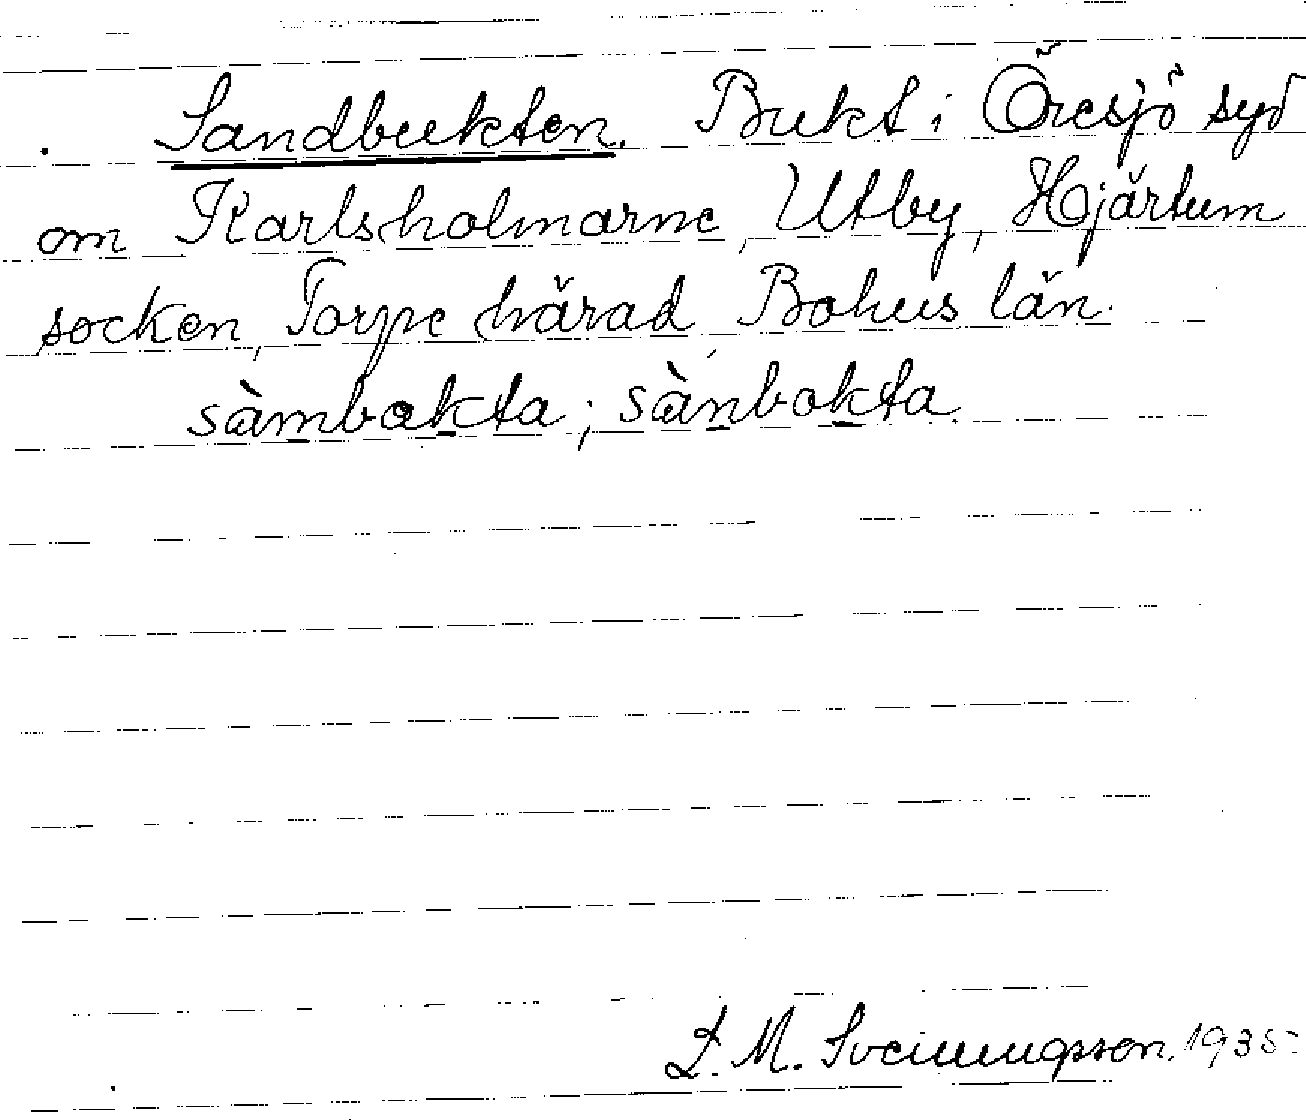 Sandbukten. Bukt i Öresjö syd
om Karlsholmarne, Utby, Hjärtum
socken, Torpe härad Bohus län.
sàmbokta; sànbokta.
L. M. Sveinungsson. 1935